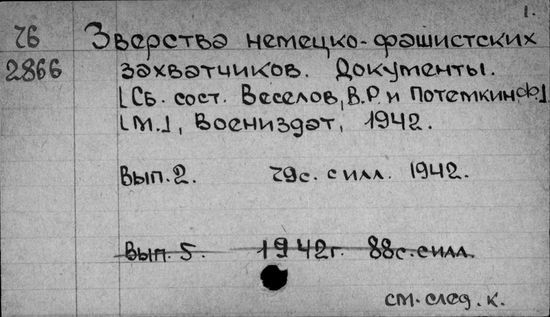 1.
Ч6 Зверства немецко-фашистских
2866 захватчиков. Документы.
[Сб. сост. Веселов, В.Р. и Потемкин Ф.]
[М.], Воениздат, 1942.
Вып. 2. 79с. с илл. 1942.
Вып. 5. 1942г. 88с. с илл.
см. след. к.